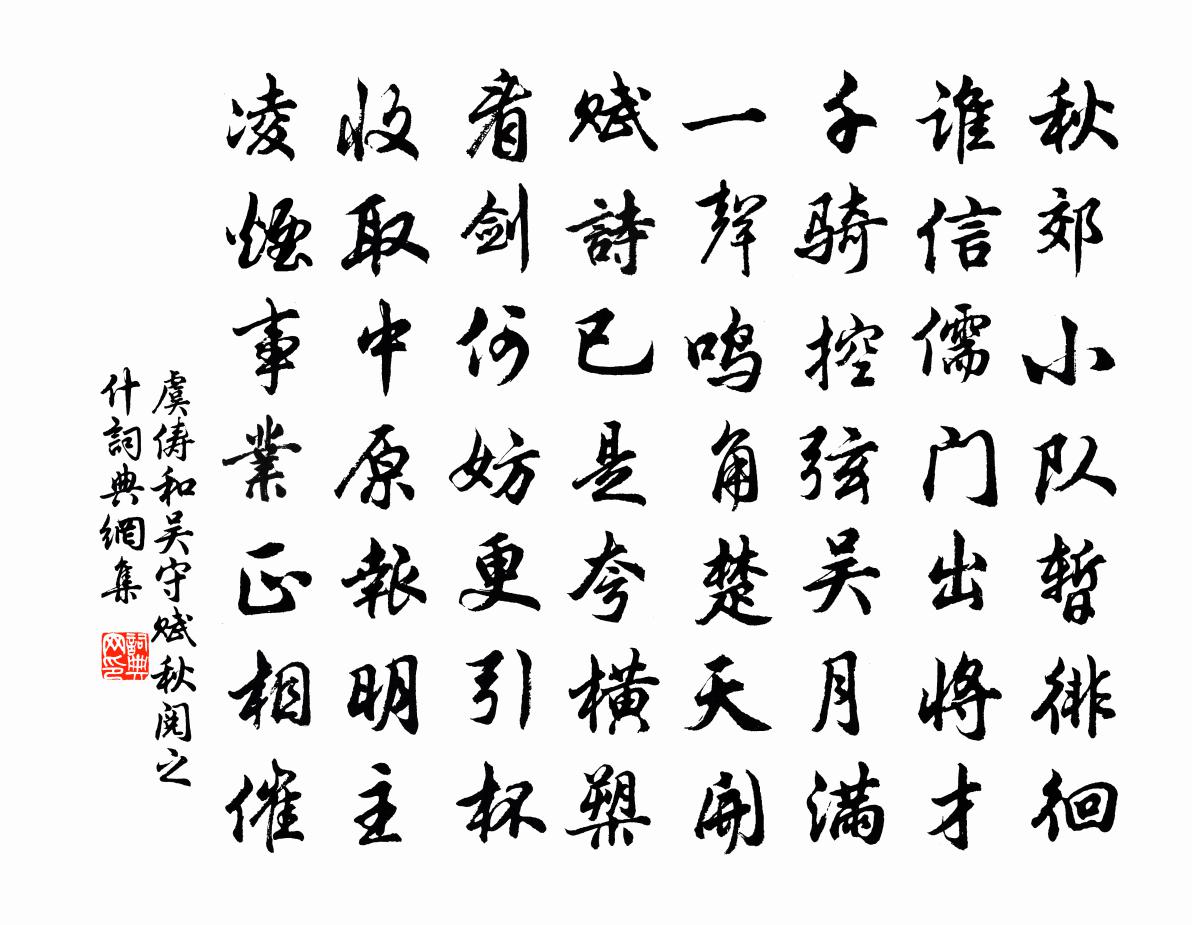 秋郊小队暂徘徊
谁信儒门出将才
千骑控弦吴月满
一聲鸣角楚天開
赋詩已是夸横槊
看剑何妨更引杯
收取中原報明主
凌煙事業正相催
虞俦和吴守赋秋阅之
什詞典網集
詞典网印